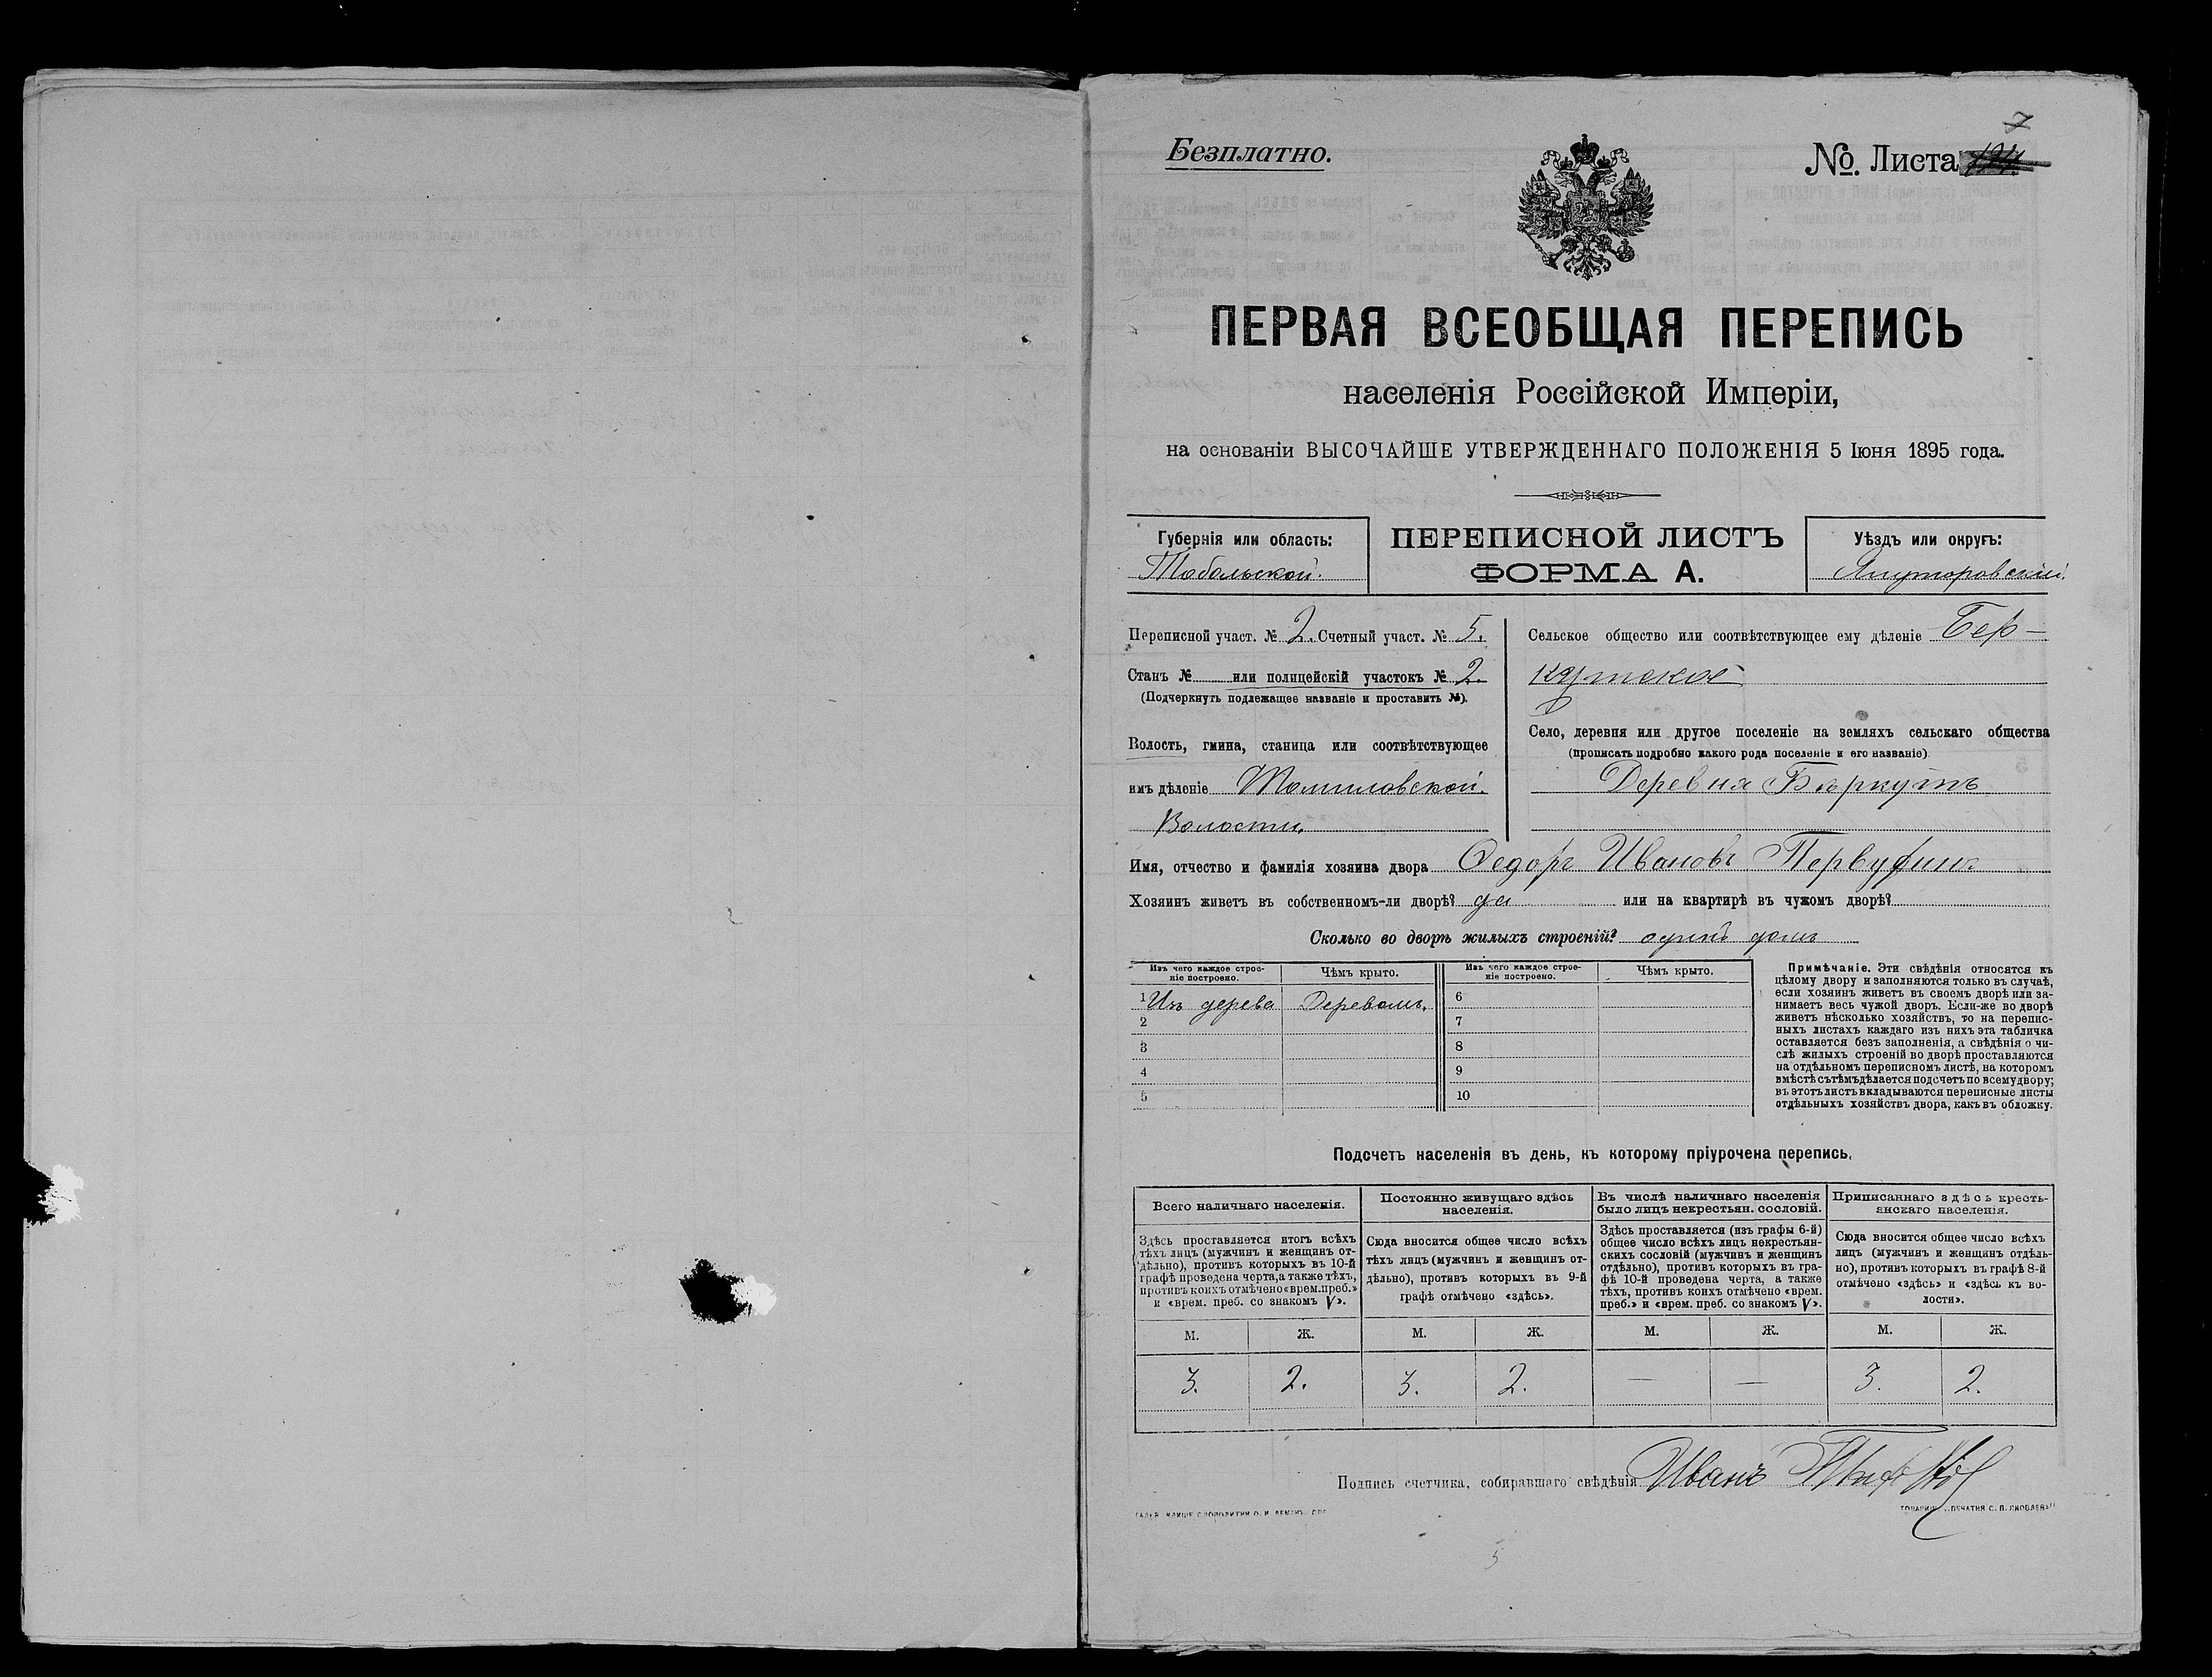 7
Безплатно.
№. Листа
ПЕРВАЯ ВСЕОБЩАЯ ПЕРЕПИСЬ
населенія Россійской Имперіи,
на основаніи ВЫСОЧАЙШЕ УТВЕРЖДЕННАГО ПОЛОЖЕНІЯ 5 Іюня 1895 года.
Губернія или область:
Тобольской.
ПЕРЕПИСНОЙ ЛИСТЪ
ФОРМА А.
Уѣздъ или округъ:
Ялуторовскій.
Переписной участ. № 2. Счетный участ. № 5.
Станъ № или полицейскій участокъ № 2.
(Подчеркнуть подлежащее названіе и проставить №).
Волость, гмина, станица или соотвѣтствующее
имъ дѣленіе Томиловской.
Волости.
Сельское общество или соотвѣтствующее ему дѣленіе Бер-
кутское
Село, деревня или другое поселеніе на земляхъ сельскаго общества
(прописать подробно какого рода поселеніе и его названіе)
Деревня Беркутъ
Имя, отчество и фамилія хозяина двора Федоръ Ивановъ Первухинъ
Хозяинъ живетъ въ собственномъ-ли дворѣ? да или на квартирѣ въ чужомъ дворѣ?
Сколько во дворѣ жилыхъ строеній? одинъ домъ
Изъ чего каждое строе-
ніе построено.
Чѣмъ крыто.
1 Изъ дерева Деревомъ.
2
3
4
5
Изъ чего каждое строе-
ніе построено.
Чѣмъ крыто.
6
7
8
9
10
Примѣчаніе. Эти свѣдѣнія относятся къ
цѣлому двору и заполняются только въ случаѣ,
если хозяинъ живетъ въ своемъ дворѣ или за-
нимаетъ весь чужой дворъ. Если-же во дворѣ
живетъ нѣсколько хозяйствъ, то на перепис-
ныхъ листахъ каждаго изъ нихъ эта табличка
оставляется безъ заполненія, а свѣдѣнія о чи-
слѣ жилыхъ строеній во дворѣ проставляются
на отдѣльномъ переписномъ листѣ, на которомъ
вмѣстѣ съ тѣмъ дѣлается подсчетъ по всему двору;
въ этотъ листъ вкладываются переписные листы
отдѣльныхъ хозяйствъ двора, какъ въ обложку.
Подсчетъ населенія въ день, къ которому пріурочена перепись.
Всего наличнаго населенія.
Здѣсь проставляется итогъ всѣхъ
тѣхъ лицъ (мужчинъ и женщинъ от-
дѣльно), противъ которыхъ въ 10-й
графѣ проведена черта, а также тѣхъ,
противъ коихъ отмѣчено «врем. преб.»
и «врем. преб. со знакомъ V».
М. Ж.
3. 2.
Постоянно живущаго здѣсь
населенія.
Сюда вносится общее число всѣхъ
тѣхъ лицъ (мужчинъ и женщинъ от-
дѣльно), противъ которыхъ въ 9-й
графѣ отмѣчено «здѣсь».
М. Ж.
3. 2.
Въ числѣ наличнаго населенія
было лицъ некрестьян. сословій.
Здѣсь проставляется (изъ графы 6-й)
общее число всѣхъ лицъ некрестьян-
скихъ сословій (мужчинъ и женщинъ
отдѣльно), противъ которыхъ въ гра-
фѣ 10-й проведена черта, а также
тѣхъ, противъ коихъ отмѣчено «врем.
преб.» и «врем. преб. со знакомъ V».
М. Ж.
— —
Приписаннаго здѣсь кресть-
янскаго населенія.
Сюда вносится общее число всѣхъ
лицъ (мужчинъ и женщинъ отдѣль-
но), противъ которыхъ въ графѣ 8-й
отмѣчено «здѣсь» и «здѣсь къ во-
лости».
М. Ж.
3. 2.
Подпись счетчика, собиравшаго свѣдѣнія Иванъ
5